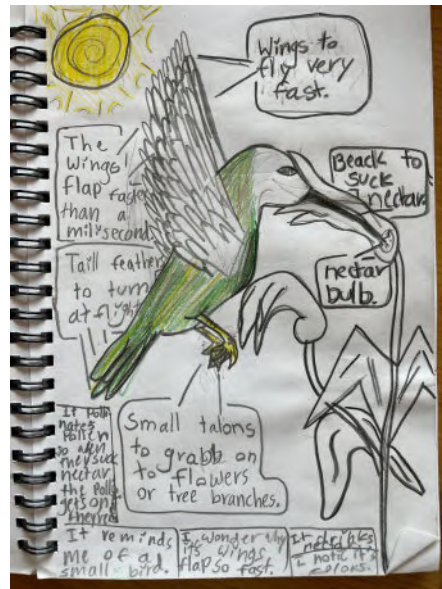 Wings to
fly very
fast.
The
Wings
flap faster
than a
milisecond.
Beack to
suck
nectar
nectar
bulb.
Taill feather
to turn
at flight
Small talons
to grabb on
to flowers
or tree branches.
It polli
nates
Pollen
so when
they suck
nectar
the Polle
gets on
It reminds
me of a
small bird.
I wonder why
its wings
flap so fast.
I notic it's
colors.